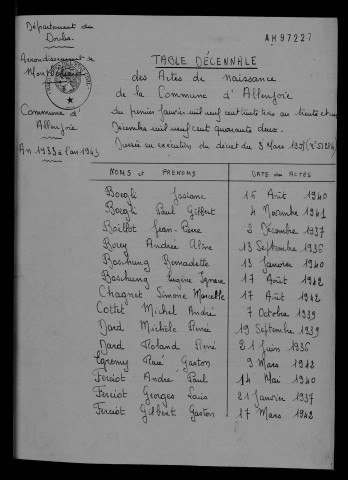 Département du
Doubs
AH 97227
Arrondissement de
Montbéliard
Commune d'
Allenjoie
An 1933 à l'an 1943
TABLE DÉCENNALE
des Actes de Naissance
de la Commune d'Allenjoie
du premier Janvier mil neuf cent trente trois au trente et un
Décembre mil neuf cent quarante deux.
Dressée en exécution du décret du 3 Mars 1951
NOMS et PRENOMS DATE DES ACTES
Boegli Josiane 16 Août 1940
Boegli Paul Gilbert 4 Novembre 1941
Boillot Jean-Pierre 3 Décembre 1937
Bovey Andrée Aline 13 Septembre 1936
Boschung Bernadette 13 Janvier 1940
Boschung Eugène Ignace 17 Août 1942
Chagnet Simone Marcelle 17 Août 1942
Cottet Michel André 7 Octobre 1939
Dard Michèle Renée 19 Septembre 1939
Dard Roland René 21 Juin 1936
Egremy René Gaston 9 Mars 1942
Ferciot André Paul 14 Mai 1940
Ferciot Georges Louis 21 Janvier 1937
Ferciot Gilbert Gaston 17 Mars 1942